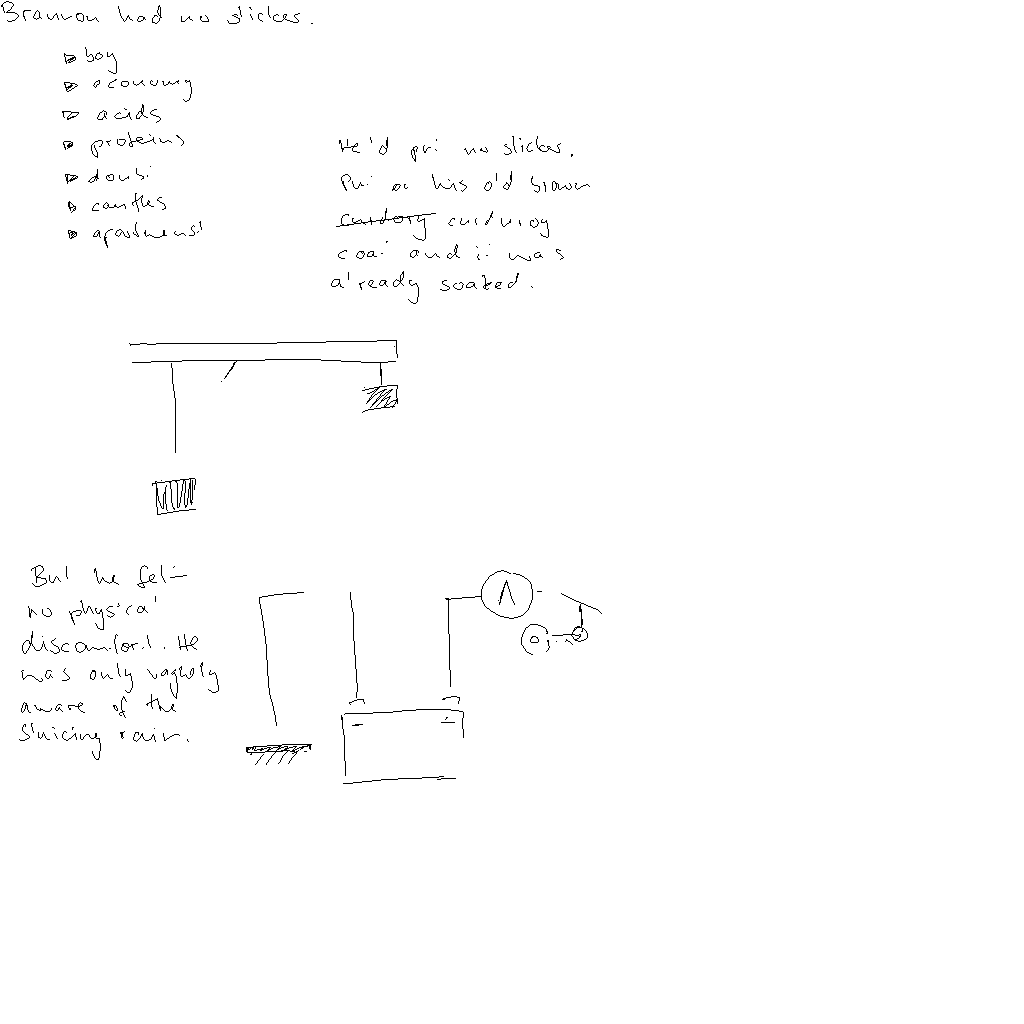 Brannon had no slicker.
boy
economy
acids
proteins
doubt
candles
apartment
He'd put no slicker.
Put on his old brown
cordory corduroy
coat and it was
already soaked.
But he felt
no physical
discomfort. He
was only vaguely
aware of the
sluicing rain.
A